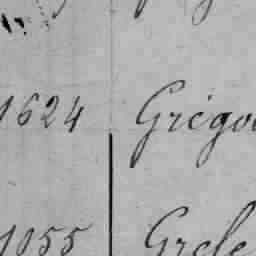 1624 Grégo
1055 Grele